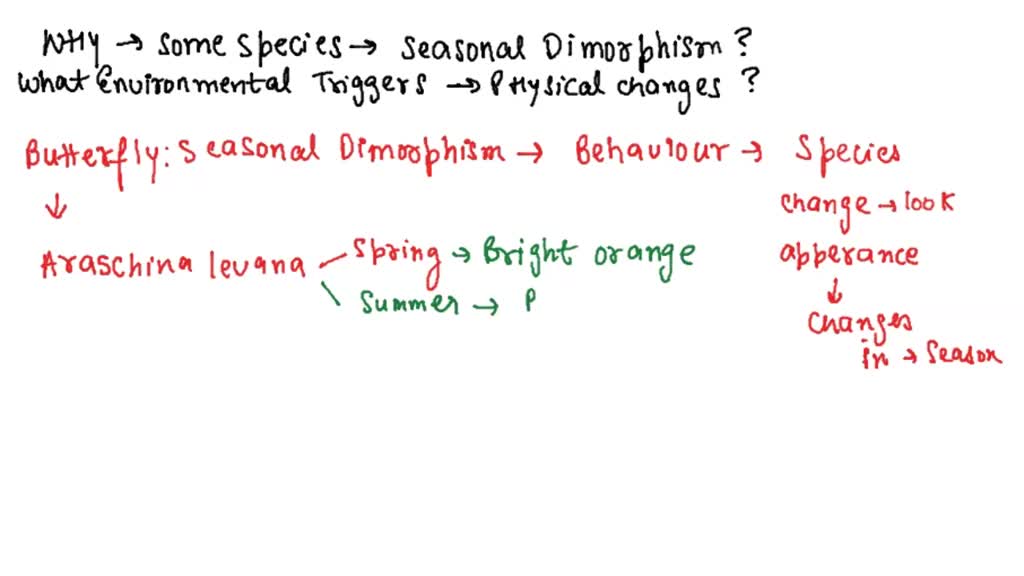 WHY → some species → seasonal Dimorphism ?
What Environmental Triggers → PHysical changes ?
Butterfly: Seasonal Dimorphism → Behaviour → Species
↓
change → look
Araschina levana
Spring → Bright orange
apperance
↓
Summer → P
changes
in → season